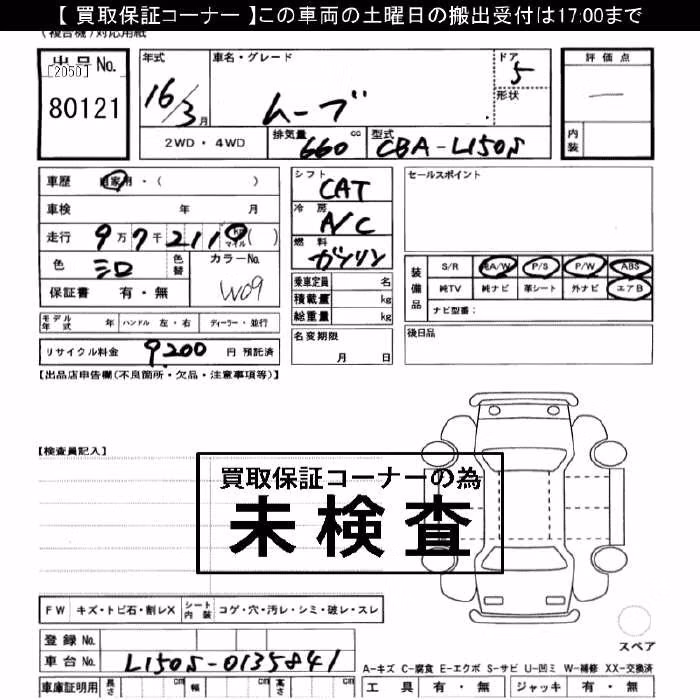 【 買取保証コーナー 】この車両の土曜日の搬出受付は17:00まで
(複合機)対応用紙
出品No. [2050] 80121
年式 16/3月
車名・グレード ムーブ
ドア 5
形状
評価点 ―
内装
2WD・4WD
排気量 660 cc
型式 CBA-L150S
車歴 自家用・( )
車検 年 月
走行 9万7千211 マイル ( )
色 シロ 色替
カラーNo. W09
保証書 有・無
シフト CAT
冷房 A/C
燃料 ガソリン
乗車定員 名
積載量 kg
総重量 kg
セールスポイント
装備品 S/R 純A/W P/S P/W ABS
純TV 純ナビ 革シート 外ナビ エアB
ナビ型番:
モデル年式 年 ハンドル 左・右 ディーラー・並行
リサイクル料金 9,200 円 預託済
名変期限 月 日
後日品
【出品店申告欄(不良箇所・欠品・注意事項等)】
【検査員記入】
買取保証コーナーの為
未検査
FW キズ・トビ石・割レX シート内装 コゲ・穴・汚レ・シミ・破レ・スレ
スペア
登録No.
車台No. L150S-0135841
A-キズ C-腐食 E-エクボ S-サビ U-凹ミ W-補修 XX-交換済
車庫証明用 長さ cm 幅 cm 高さ cm
工具 有・無 ジャッキ 有・無